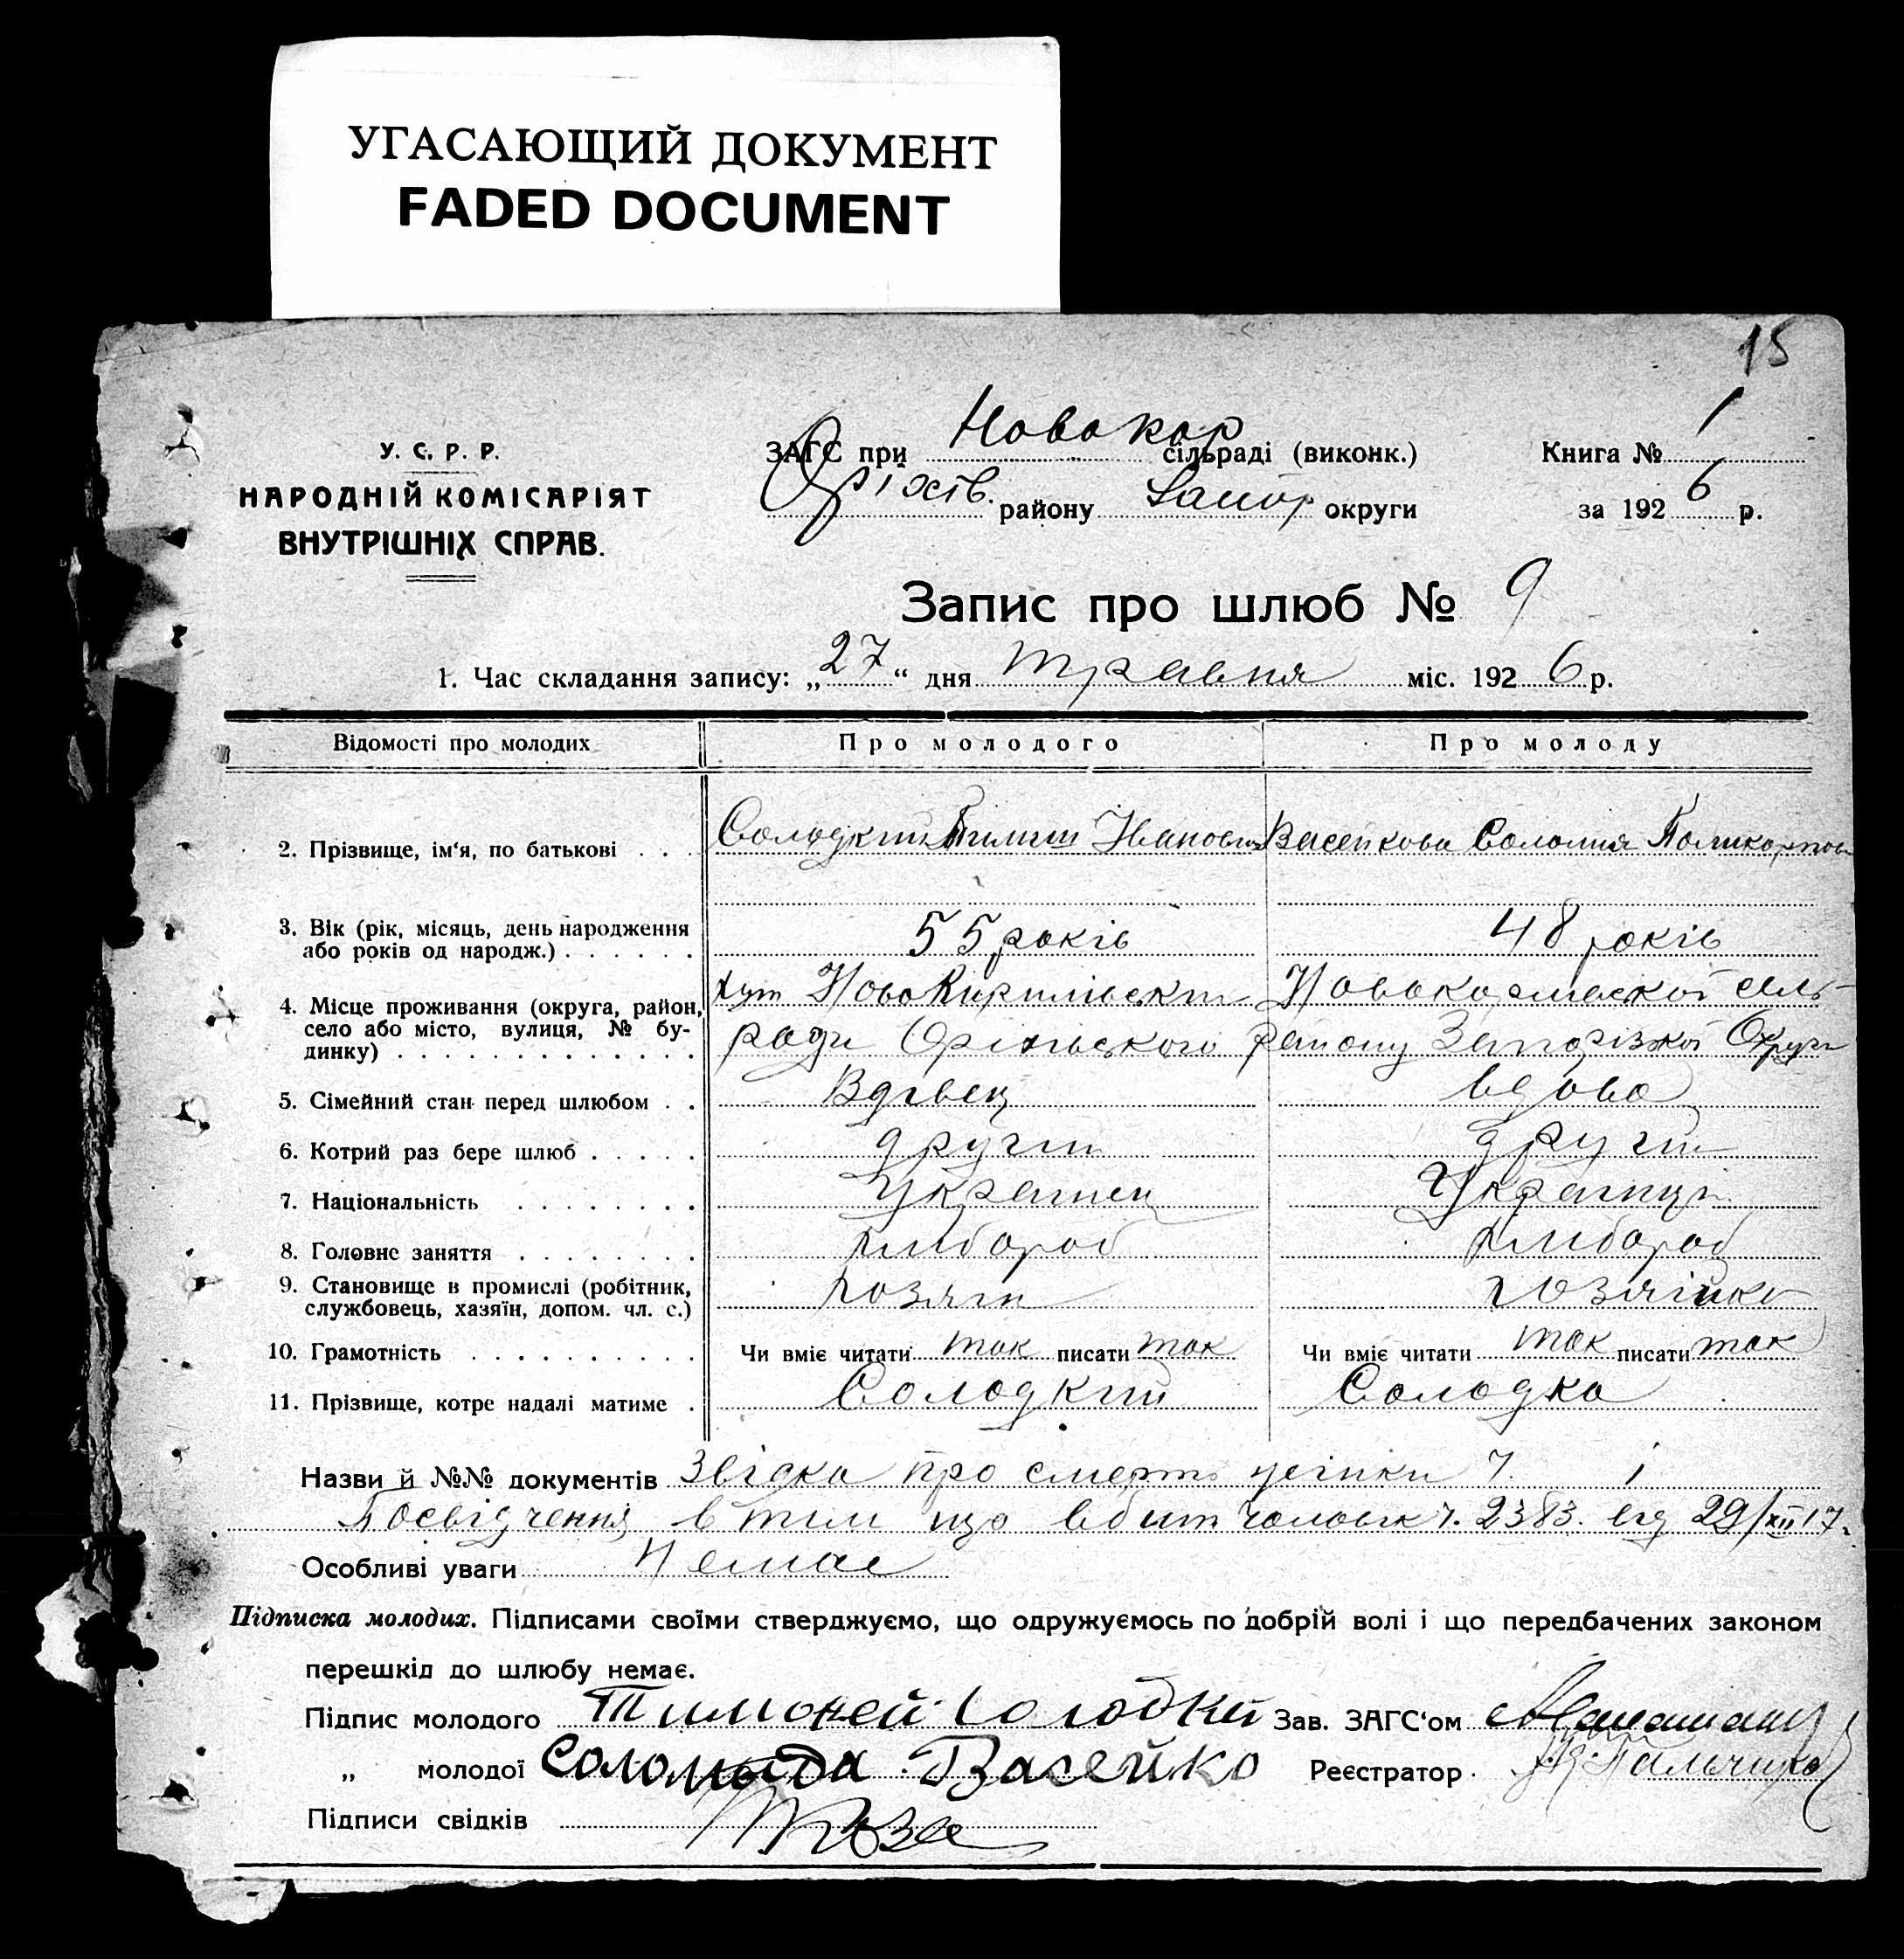 УГАСАЮЩИЙ ДОКУМЕНТ
FADED DOCUMENT
15
У. С. Р. Р.
НАРОДНІЙ КОМІСАРІЯТ
ВНУТРІШНІХ СПРАВ.
ЗАГС при Новокар сільраді (виконк.)
Оріхів. району Запор округи
Книга № 1
за 1926 р.
Запис про шлюб № 9
1. Час складання запису: „27“ дня травня міс. 1926 р.
Відомості про молодих Про молодого Про молоду
2. Прізвище, ім‘я, по батькові . . . Солодкий Іванович Васейкова Соломия Поликарпов
3. Вік (рік, місяць, день народження
або років од народж.) . . . . . . 55 років 48 років
4. Місце проживання (округа, район, хут Новокарлівської сель-
село або місто, вулиця, № бу- ради Оріхівського району Запорізкої Округи
динку) . . . . . . . . . . . . .
5. Сімейний стан перед шлюбом . . Вдівец вдова
6. Котрий раз бере шлюб . . . . . другий другий
7. Національність . . . . . . . . Украінец Украінца
8. Головне заняття . . . . . . . . хлибороб хлибороб
9. Становище в промислі (робітник, хозяін хозяінка
службовець, хазяїн, допом. чл. с.)
10. Грамотність . . . . . . . . . . Чи вміє читати так писати так Чи вміє читати так писати так
11. Прізвище, котре надалі матиме . Солодкий Солодка
Назви й №№ документів Звідка про смерть жінки ч. 1
Посвідчення в тим що вбит чоловік ч. 2383. від 29/XII 17.
Особливі уваги Немає
Підписка молодих. Підписами своїми стверджуємо, що одружуємось по добрій волі і що передбачених законом
перешкід до шлюбу немає.
Підпис молодого Тимофей Солодкий Зав. ЗАГС‘ом
„ молодої Васейко Реєстратор Пальчиков
Підписи свідків